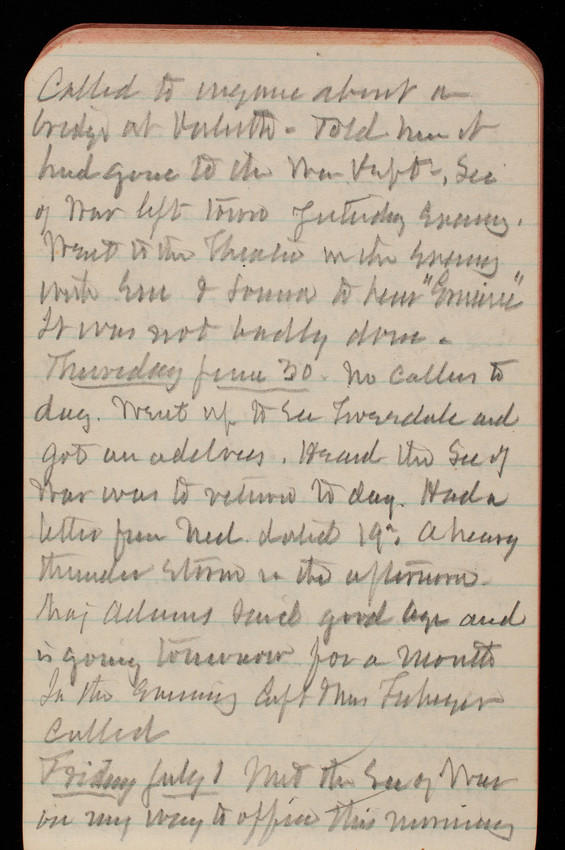 Called to inquire about a
bridge at Duluth - Told him it
had gone to the War Dept -, Sec
of War left town yesterday Evening.
Went to the Theatre in the Evening
with Em & to hear "Erminie"
It was not badly done -
Thursday June 30. No callers to
day. Went up to see Tweedale and
got an address. Heard the Sec of
War was to return to day. Had a
letter from Ned dated 19th. A heavy
thunder storm in the afternoon.
Maj Adams said good bye and
is going tomorrow for a month
In the Evening Capt & Mrs
called
Friday July 1 Met the Sec of War
on my way to office this morning